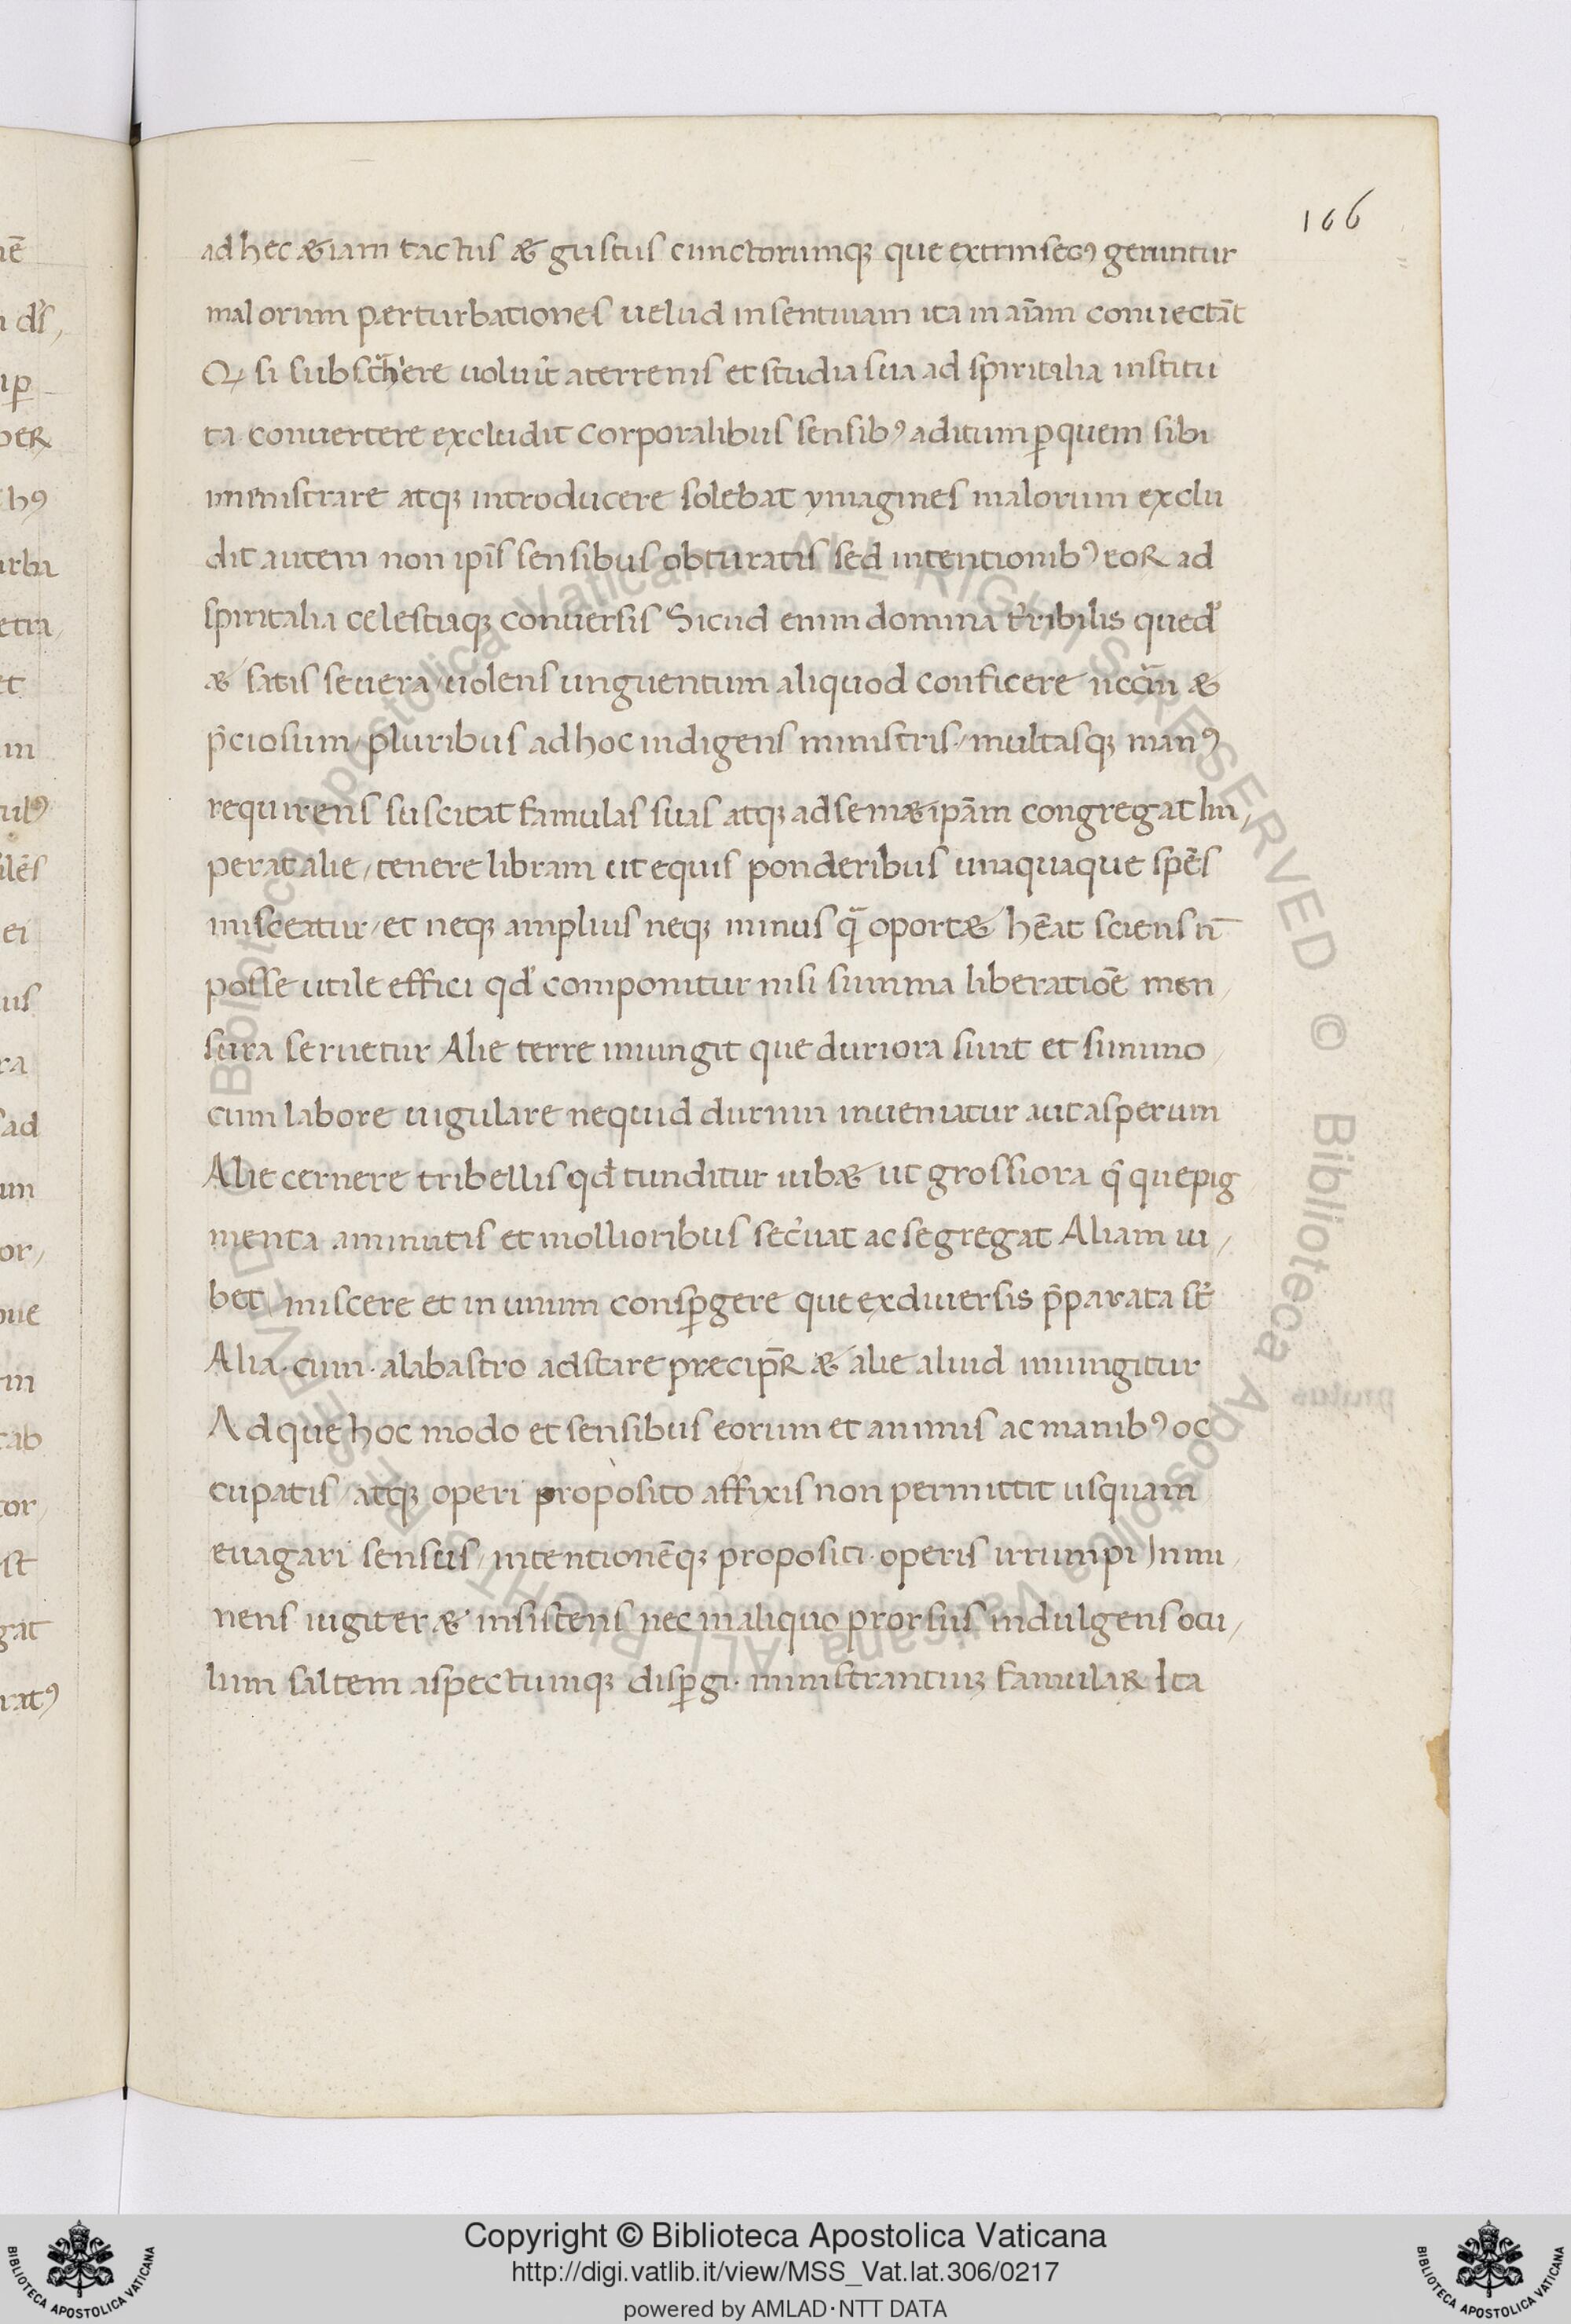 166
ad hec & iam tactus & gustus cunctorumq; que extrinsecꝰ geruntur
malorum perturbationes uelud in sentinam ita in aīam conuectāt
Qꝫ si subscͥhere uoluīt a terrenis et studia sua ad spiritalia institu
ta conuertere excludit corporalibus sensibꝰ aditum ꝑ quem sibi
ministrare atq; introducere solebat ymagines malorum exclu
dit autem non ip̄is sensibus obturatis sed intentionibꝰ eoꝝ ad
spiritalia celestiaq; conuersis Sicud enim domina t̄ribilis qued'
& satis seuera / uolens unguentum aliquod conficere nccīm &
p̄ciosum / pluribus ad hoc indigens ministris / multasq; manꝰ
requirens suscitat famulas suas atq; ad sem&ipām congregat Im /
perat alie / tenere libram ut equis ponderibus unaquaque spēs
misceatur / et neq; amplius neq; minus q̄ oport& hēat sciens n̄
posse utile effici qd' componitur nisi summa liberatiōe men /
sura seruetur Alie terre iniungit que duriora sunt et summo /
cum labore uigulare nequid durum inueniatur aut asperum
Alie cernere tribellis qd tunditur iub& ut grossiora q̄que pig
menta a minutis et mollioribus sec̄uat ac segregat Aliam iu /
bet miscere et in unum consꝑgere que ex diuersis p̄parata st̄
Alia · cum · alabastro adstare precip̄ꝝ & alie aliud iniungitur
Adque hoc modo et sensibus eorum et animis ac manibꝰ oc
cupatis / atq; operi proposito affixis non permittit usquam
euagari sensus / intentionēq; propositi · operis irrumpi Inmi /
nens iugiter & insistens nec in aliquo prorsus indulgens ocu /
lum saltem aspectumq; disꝑgi · ministrantiuꝫ famulaꝝ Ita
Copyright © Biblioteca Apostolica Vaticana
http://digi.vatlib.it/view/MSS_Vat.lat.306/0217
powered by AMLAD·NTT DATA